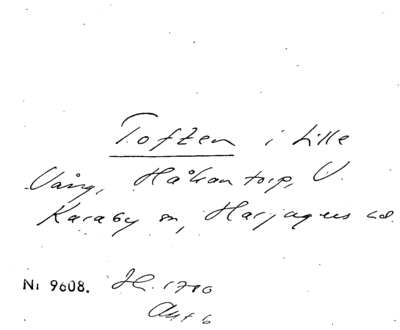 Toften i Lille
Vång, Håkantorp, V.
Karaby sn, Harjagers hd.
Ni 9608. H. 1710
Akt 6